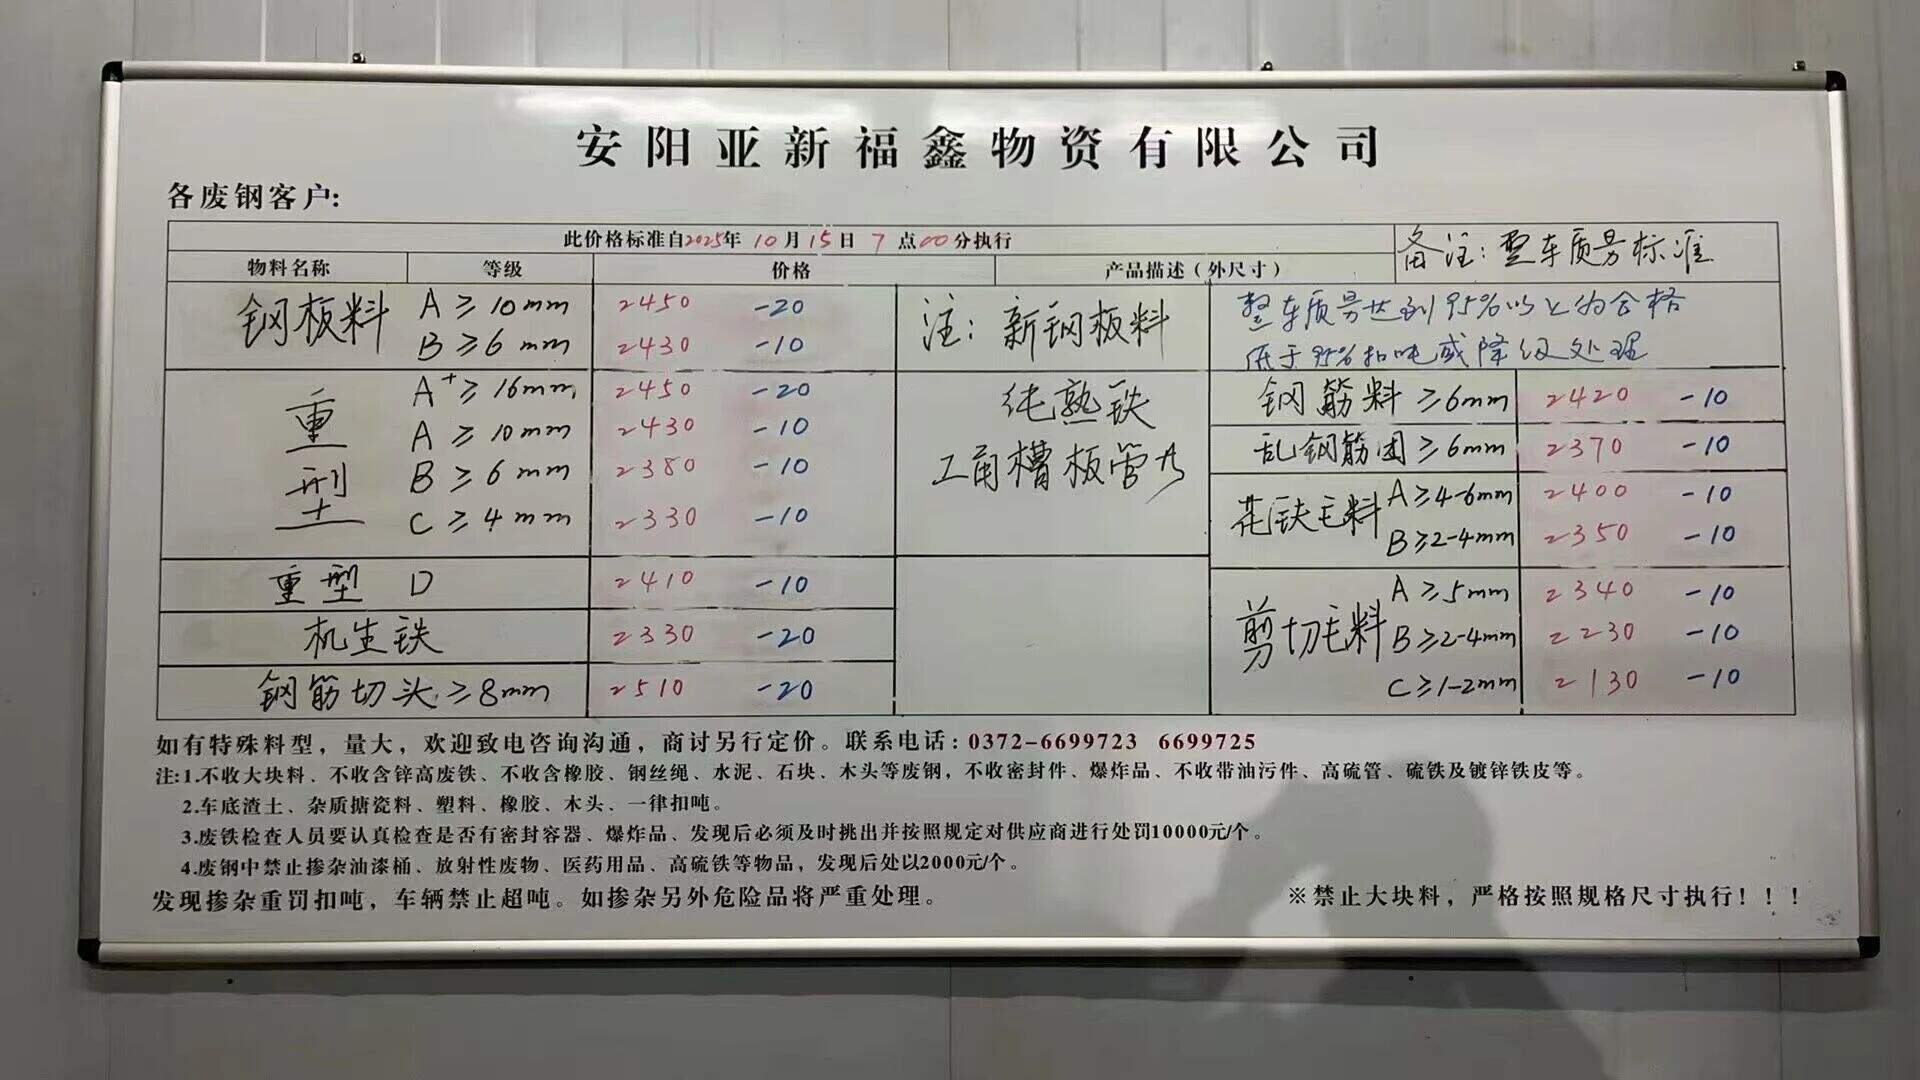 安阳亚新福鑫物资有限公司
各废钢客户:
此价格标准自2025年 10月15日 7点00分执行
备注: 整车质量标准
物料名称 等级 价格 产品描述(外尺寸)
钢板料 A≥10mm 2450 -20
B≥6mm 2430 -10
注: 新钢板料
整车质量达到95%以上为合格
低于95%扣吨或降级处理
重型 A⁺≥16mm 2450 -20
A≥10mm 2430 -10
B≥6mm 2380 -10
C≥4mm 2330 -10
纯熟铁
工角槽板管
重型 D 2410 -10
机生铁 2330 -20
钢筋切头≥8mm 2510 -20
钢筋料≥6mm 2420 -10
乱钢筋团≥6mm 2370 -10
花铁毛料 A≥4-6mm 2400 -10
B≥2-4mm 2350 -10
剪切毛料 A≥5mm 2340 -10
B≥2-4mm 2230 -10
C≥1-2mm 2130 -10
如有特殊料型，量大，欢迎致电咨询沟通，商讨另行定价。联系电话: 0372-6699723 6699725
注:1.不收大块料、不收含锌高废铁、不收含橡胶、钢丝绳、水泥、石块、木头等废钢，不收密封件、爆炸品、不收带油污件、高硫管、硫铁及镀锌铁皮等。
2.车底渣土、杂质搪瓷料、塑料、橡胶、木头、一律扣吨。
3.废铁检查人员要认真检查是否有密封容器、爆炸品、发现后必须及时挑出并按照规定对供应商进行处罚10000元/个。
4.废钢中禁止掺杂油漆桶、放射性废物、医药用品、高硫铁等物品，发现后处以2000元/个。
发现掺杂重罚扣吨，车辆禁止超吨。如掺杂另外危险品将严重处理。
※禁止大块料，严格按照规格尺寸执行！！！